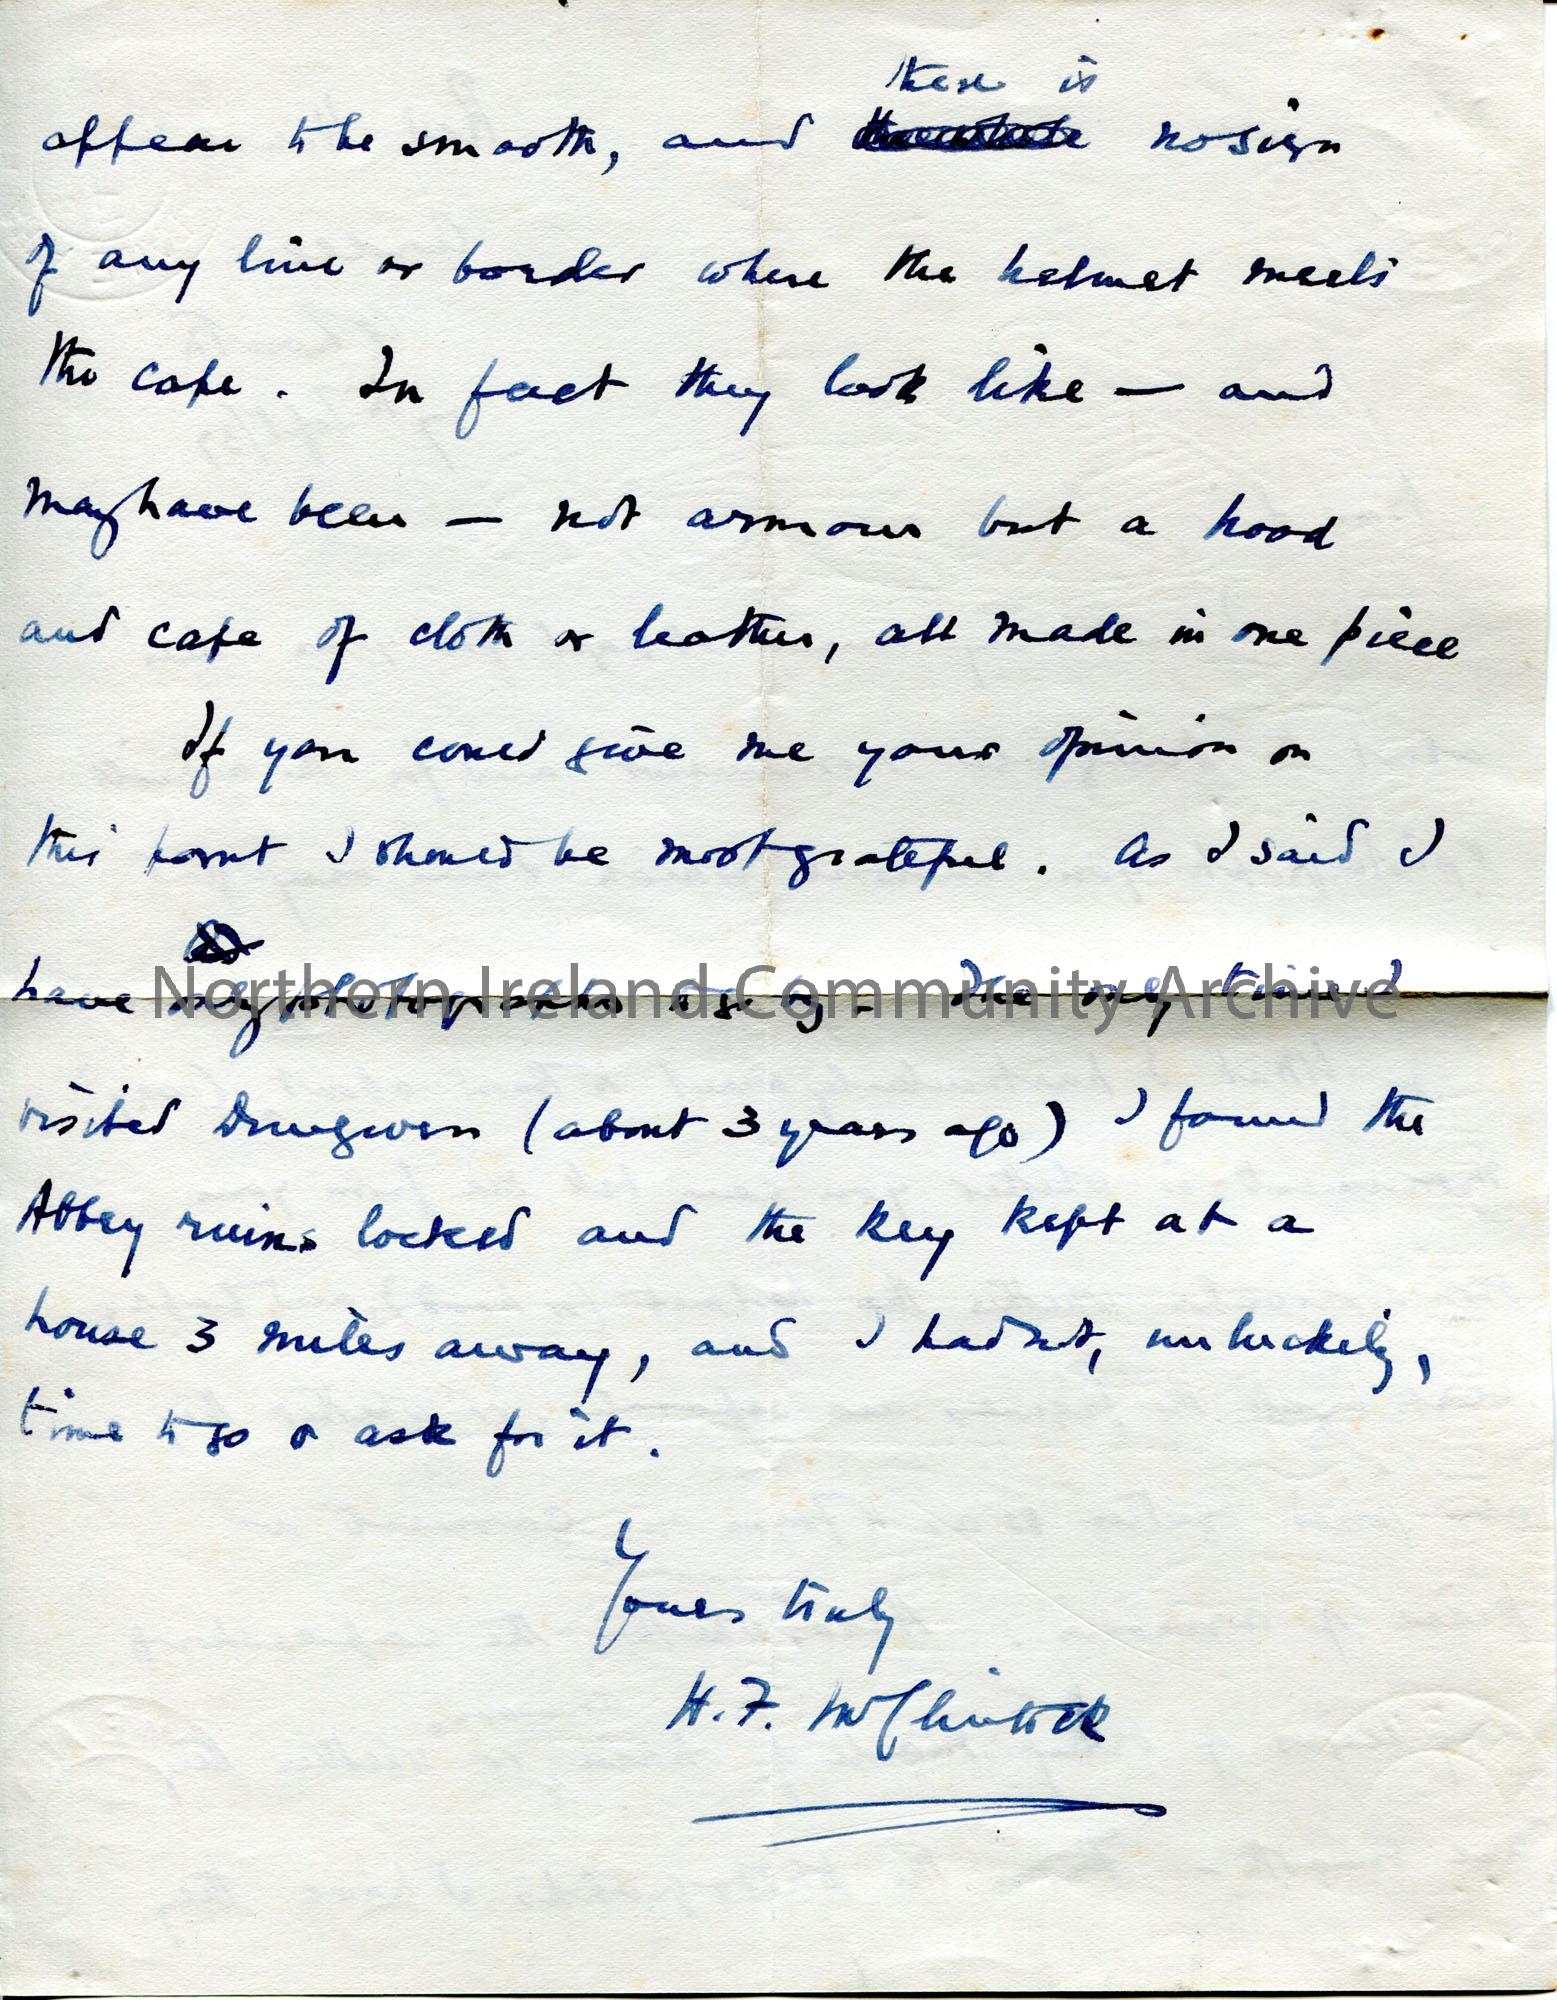 there is
appear to be smooth, and no sign
of any line or border where the helmet meets
the cape. In fact they look like — and
may have been — not armour but a hood
and cape of cloth or leather, all made in one piece
If you could give me your opinion on
this point I should be most grateful. As I said I
have only photographs to go by. The only time I
Northern Ireland Community Archive
visited Dungiven (about 3 years ago) I found the
Abbey ruins locked and the key kept at a
house 3 miles away, and I hadn't, unluckily,
time to go or ask for it.
Yours truly
H. F. McClintock